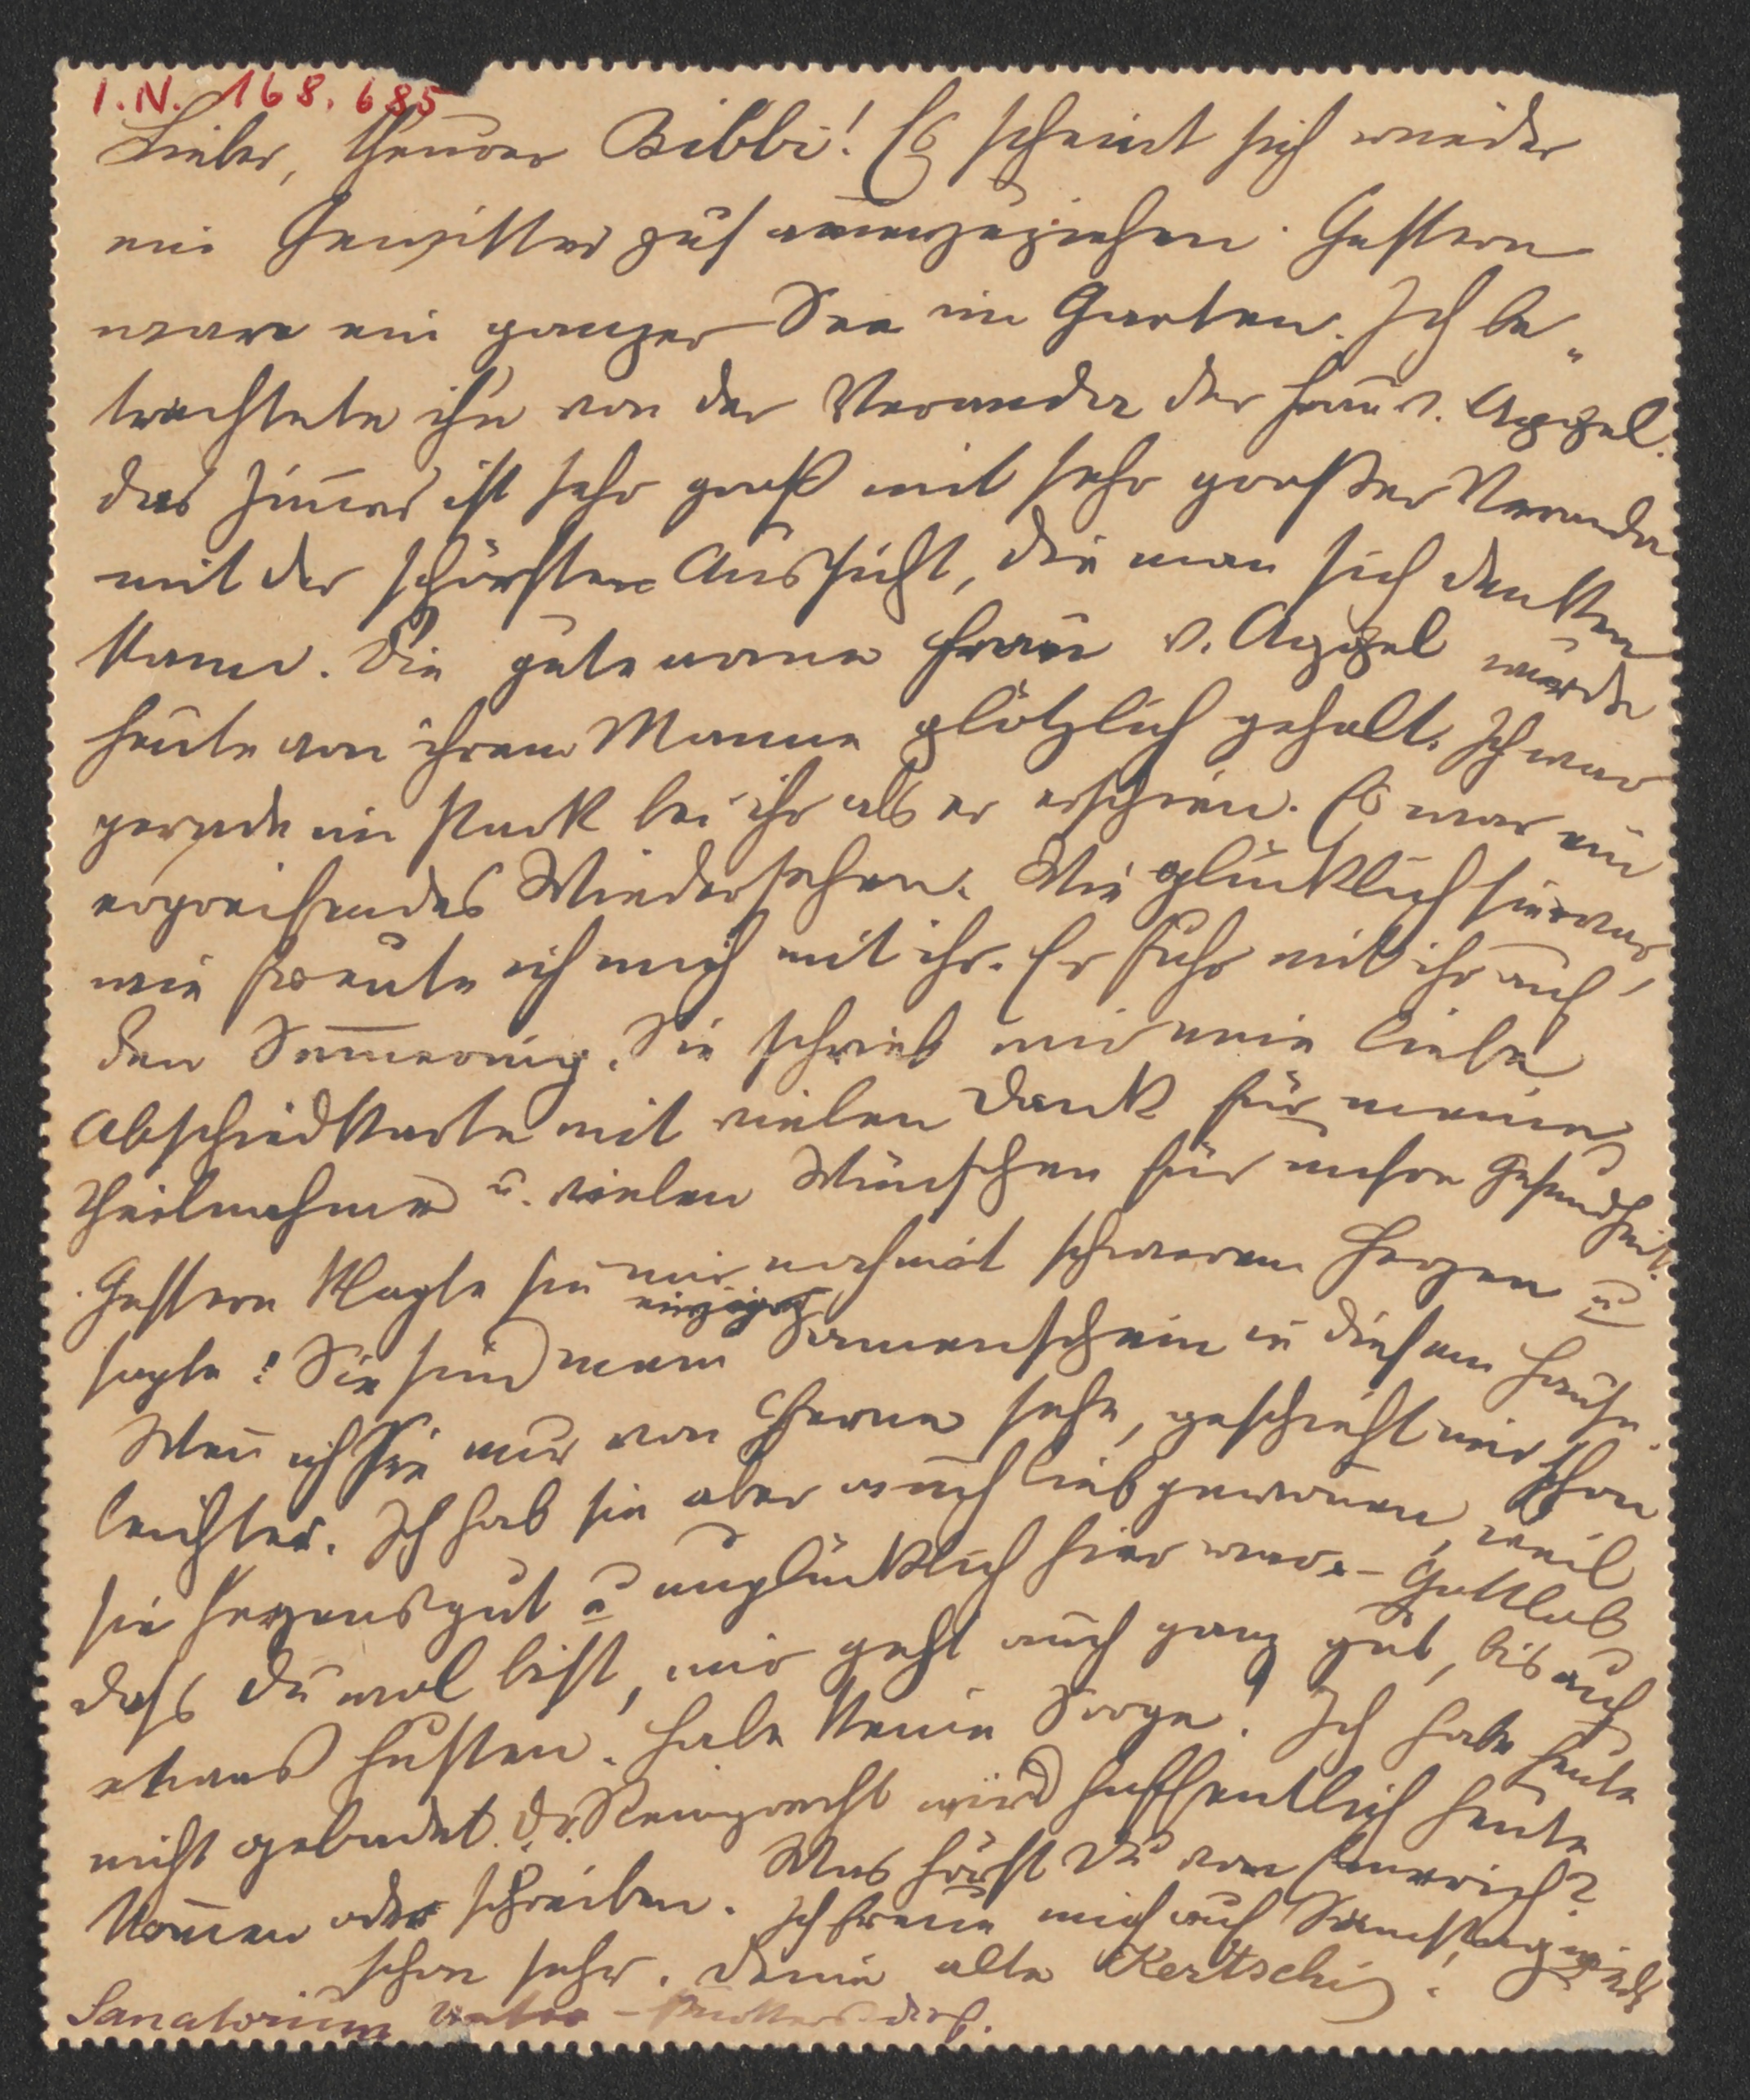 I.N. 168.685
Lieber, theurer Bibbi! Es scheint sich wieder
ein Gewitter zusammenzuziehen. Gestern
ware ein ganzer See im Garten. Ich be„
trachtete ihn von der Veranda der Frau v. Appel.
das Zimmer ist sehr groß mit sehr großer Veranda
mit der schönsten Aussicht, die man sich denken
kann. Die gute arme Frau v. Appel wurde
heute von ihrem Manne plötzlich geholt. Ich war
gerade im Park bei ihr als er erschien. Es war ein
ergreifendes Wiedersehen. Wie glücklich sie war,
wie freute ich mich mit ihr. Er fuhr mit ihr auf
den Semmering. Sie schrieb mir eine liebe
Abschiedkarte mit vielen Dank für meine
Theilnahme u. vielen Wünschen für unsre Gesundheit.
Gestern klagte sie mir noch mit schwerem Herzen u
sagte: Sie sind mein einziger Sonnenschein in diesem Hause.
Wenn ich Sie nur von Ferne sehe, geschieht mir schon
leichter. Ich hab sie aber auch liebgewonnen, weil
sie herzensgut u unglücklich hier war. – Gottlob
dass Du wol bist, mir geht auch ganz gut, bis auf
etwas Husten. Habe keine Sorge! Ich habe heute
nicht gebadet. Dr. wird hoffentlich heute
kommen oder schreiben. Was hörst Du von Emerich?
Ich freue mich auf Samstag
schon sehr. Deine alte Kertschi!
Sanatorium dorf.